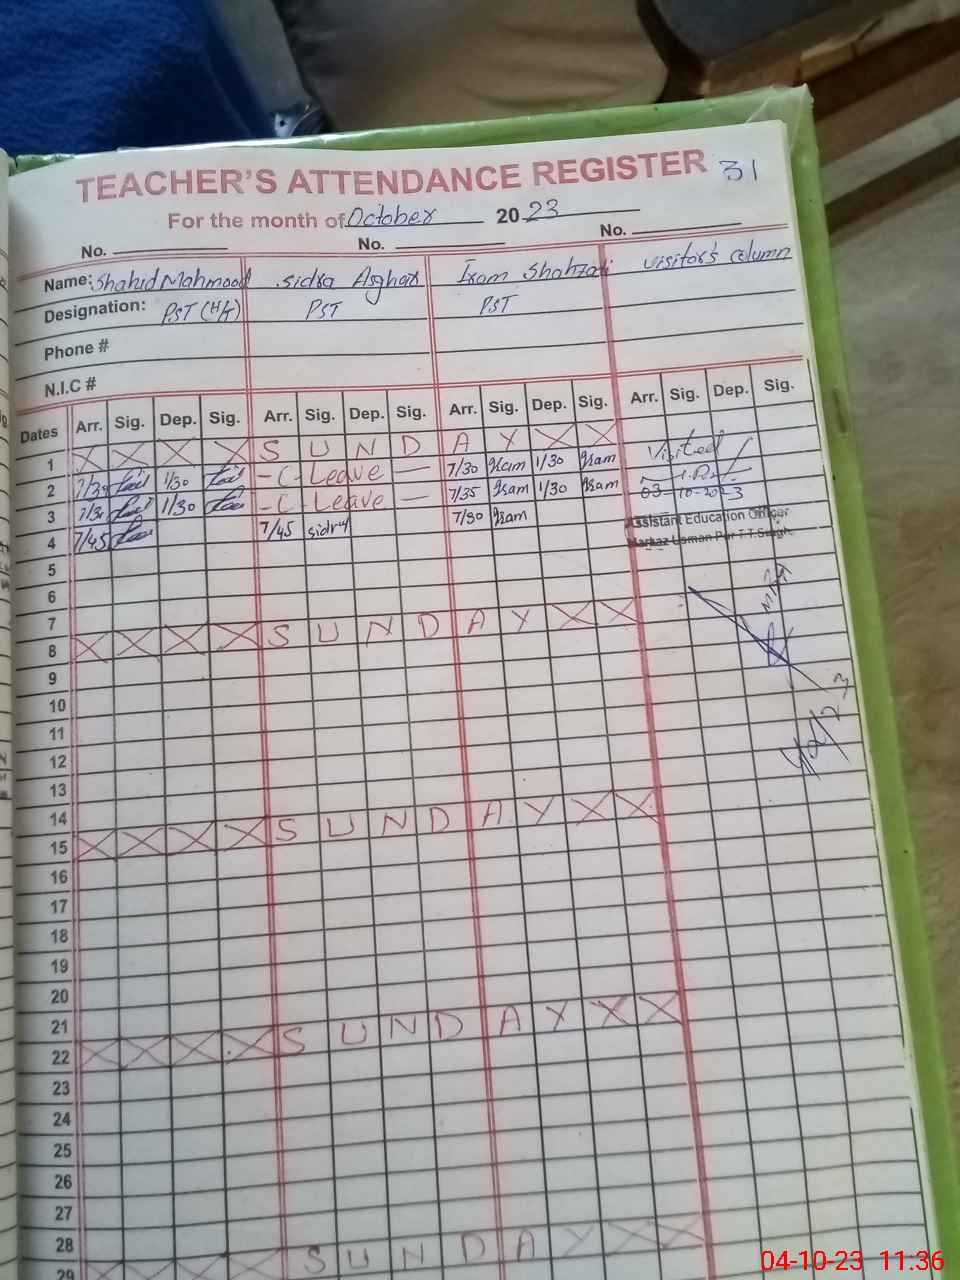 TEACHER'S ATTENDANCE REGISTER 31
For the month of October 2023
No. No. No.
Name: Shahid Mahmood Sidra Asghar Iram Shahzadi Visitor's column
Designation: PST (H/T) PST PST
Phone #
N.I.C #
Dates Arr. Sig. Dep. Sig. Arr. Sig. Dep. Sig. Arr. Sig. Dep. Sig. Arr. Sig. Dep. Sig.
1 X X X X S U N D A Y X X
2 7/30 1/30 - C - Leave — 7/30 Iram 1/30 Iram Visited
3 7/30 1/30 - C - Leave — 7/35 Iram 1/30 Iram 03-10-2023
4 7/45 7/45 Sidra 7/30 Iram Assistant Education Officer
Markaz Usman Pur T.T.Singh
5
6
7
8 X X X X S U N D A Y X X
9
10
11
12
13
14
15 X X X X S U N D A Y X X
16
17
18
19
20
21
22 X X X X S U N D A Y X X
23
24
25
26
27
28
29 S U N D A Y X X
04-10-23 11:36